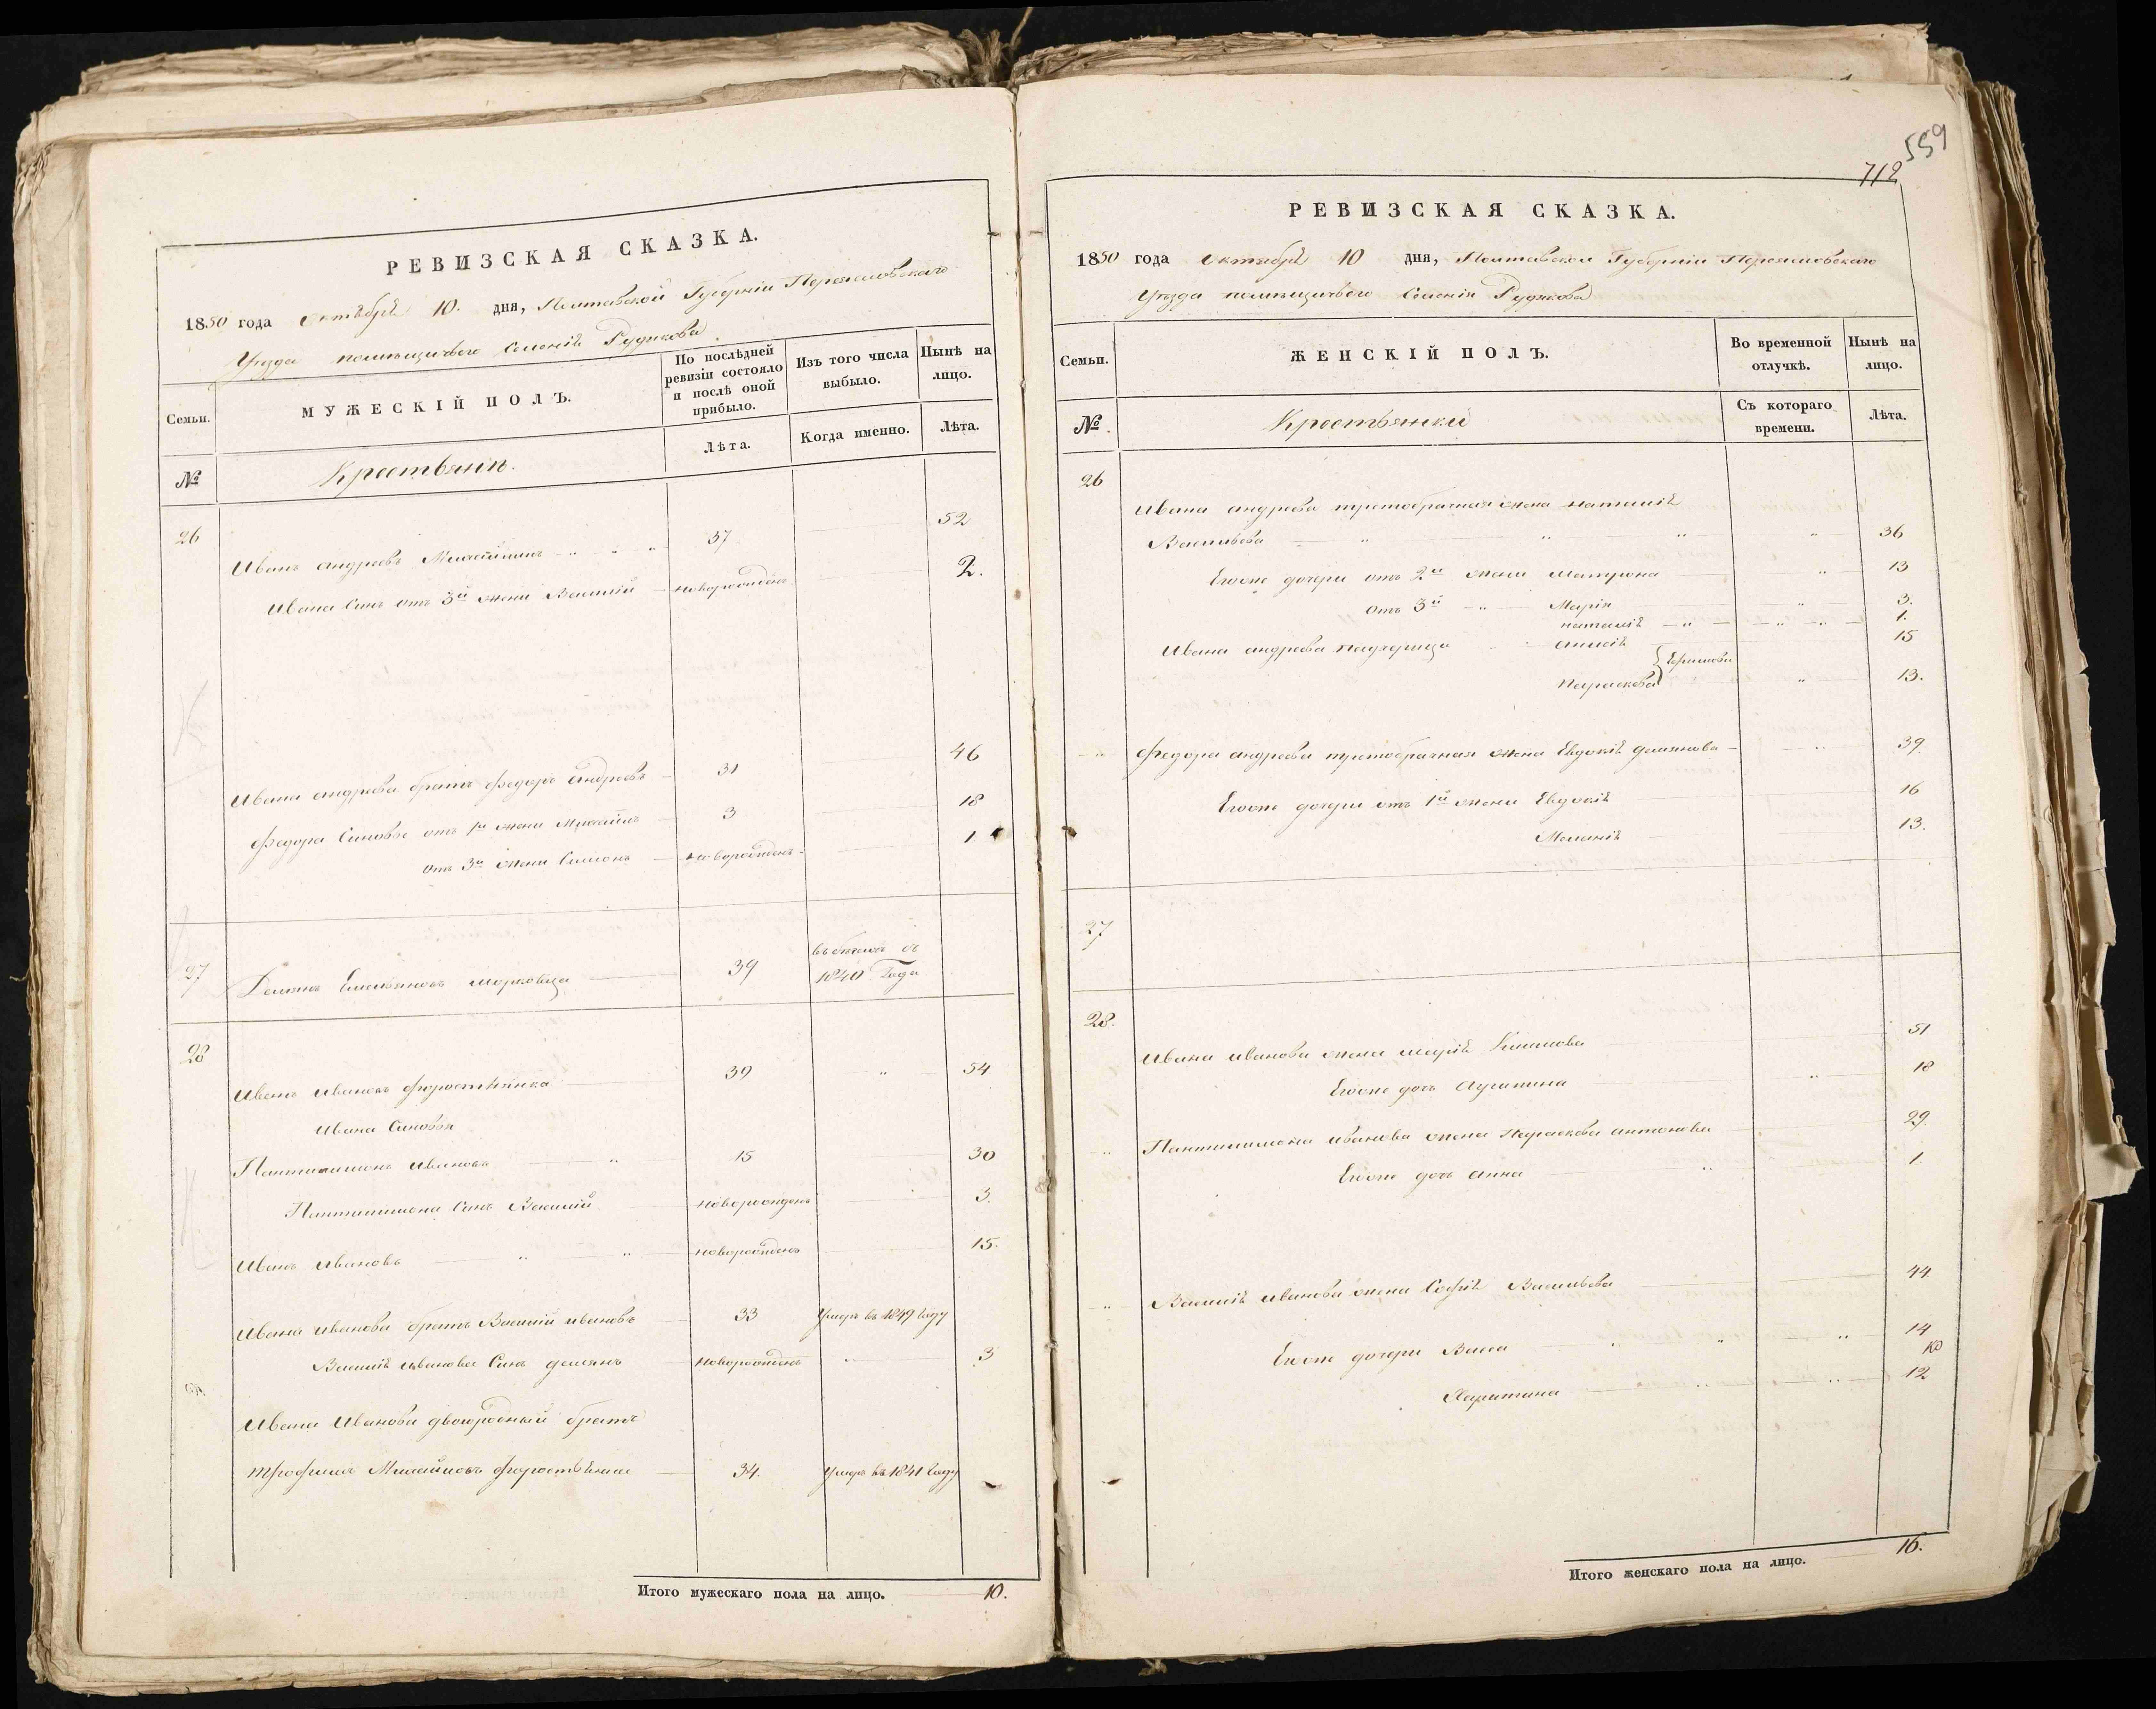 РЕВИЗСКАЯ СКАЗКА.
1850 года октября 10. дня, Полтавской Губерніи Переяславскаго
Уезда помещичьего Селенія Рудякова
Семьи.
МУЖЕСКІЙ ПОЛЪ.
По послѣдней ревизіи состояло и послѣ оной прибыло.
Изъ того числа выбыло.
Нынѣ на лицо.
Лѣта.
Когда именно.
Лѣта.
№
Крестьяне.
26
Иванъ андреевъ 37 52
Ивана Синъ отъ 3й жени Василій новорожденъ 2.
Ивана андреева братъ федоръ андреевъ 31 46
федора Синовье отъ 1й жени Михайло 3 18
отъ 3й жени Симонъ новорожденъ 1
27
Демянъ Емельяновъ 39 въ бегахъ съ
1840 Года
28
Иванъ Ивановъ 39 54
Ивана Синовья
Пантилимонъ Ивановъ 15 30
Пантилимона Синъ Василий новорожденъ 3.
Иванъ Ивановъ новорожденъ 15.
Ивана Иванова братъ Василій ивановъ 33 Умеръ въ 1849 Году
Василія иванова Синъ демянъ новорожденъ 3
Ивана Иванова двоюродный братъ
Трофимъ Михайловъ 34. Умеръ въ 1841 Году
Итого мужескаго пола на лицо. 10.
559
712
РЕВИЗСКАЯ СКАЗКА.
1850 года октября 10 дня, Полтавской Губерніи Переяславскаго
Уезда помещичьего Селенія Рудякова
Семьи.
ЖЕНСКІЙ ПОЛЪ.
Во временной отлучкѣ.
Нынѣ на лицо.
№
Крестьянки
Съ котораго времени.
Лѣта.
26
Ивана андреева третобрачная жена наталія
Васильева 36
Егоже дочери отъ 2й жени матрона 13
отъ 3й Марія 3.
наталія 1.
Ивана андреева падчерица анисія 15
Параскева 13.
федора андреева третобрачная жена Евдокія демянова 39.
Егоже дочери отъ 1й жени Евдокія 16
Меланія 13.
27
28.
Ивана иванова жена марія 51
Егоже дочь 18
Пантилимона иванова жена Параскева антонова 29.
Егоже дочь анна 1.
Василія иванова жена Софія Васильева 44
Егоже дочери Васса 14
Харитина 12
Итого женскаго пола на лицо. 16.